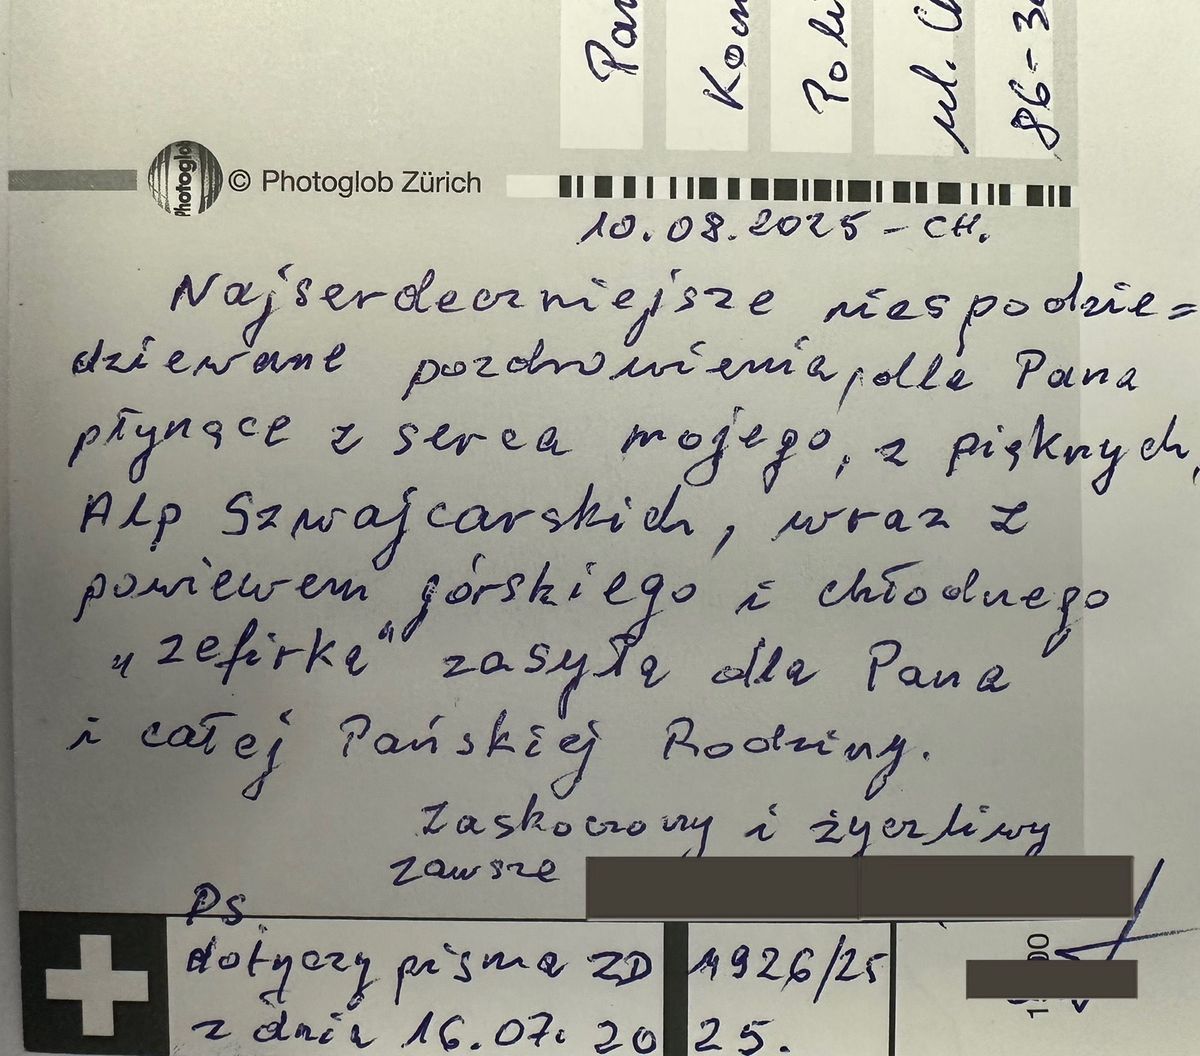 Pa
Kom
Poli
ul. C
86-3
Photoglo
© Photoglob Zürich
10.08.2025 - CH.
Najserdeczniejsze niespodzie=
dziewane pozdrowienia, dla Pana
płynące z serca mojego, z pięknych,
Alp Szwajcarskich, wraz z
powiewem górskiego i chłodnego
„zefirka" zasyła dla Pana
i całej Pańskiej Rodziny.
Zaskoczony i życzliwy
zawsze
Ps
dotyczy pisma ZD 1926/25
z dnia 16.07. 2025.